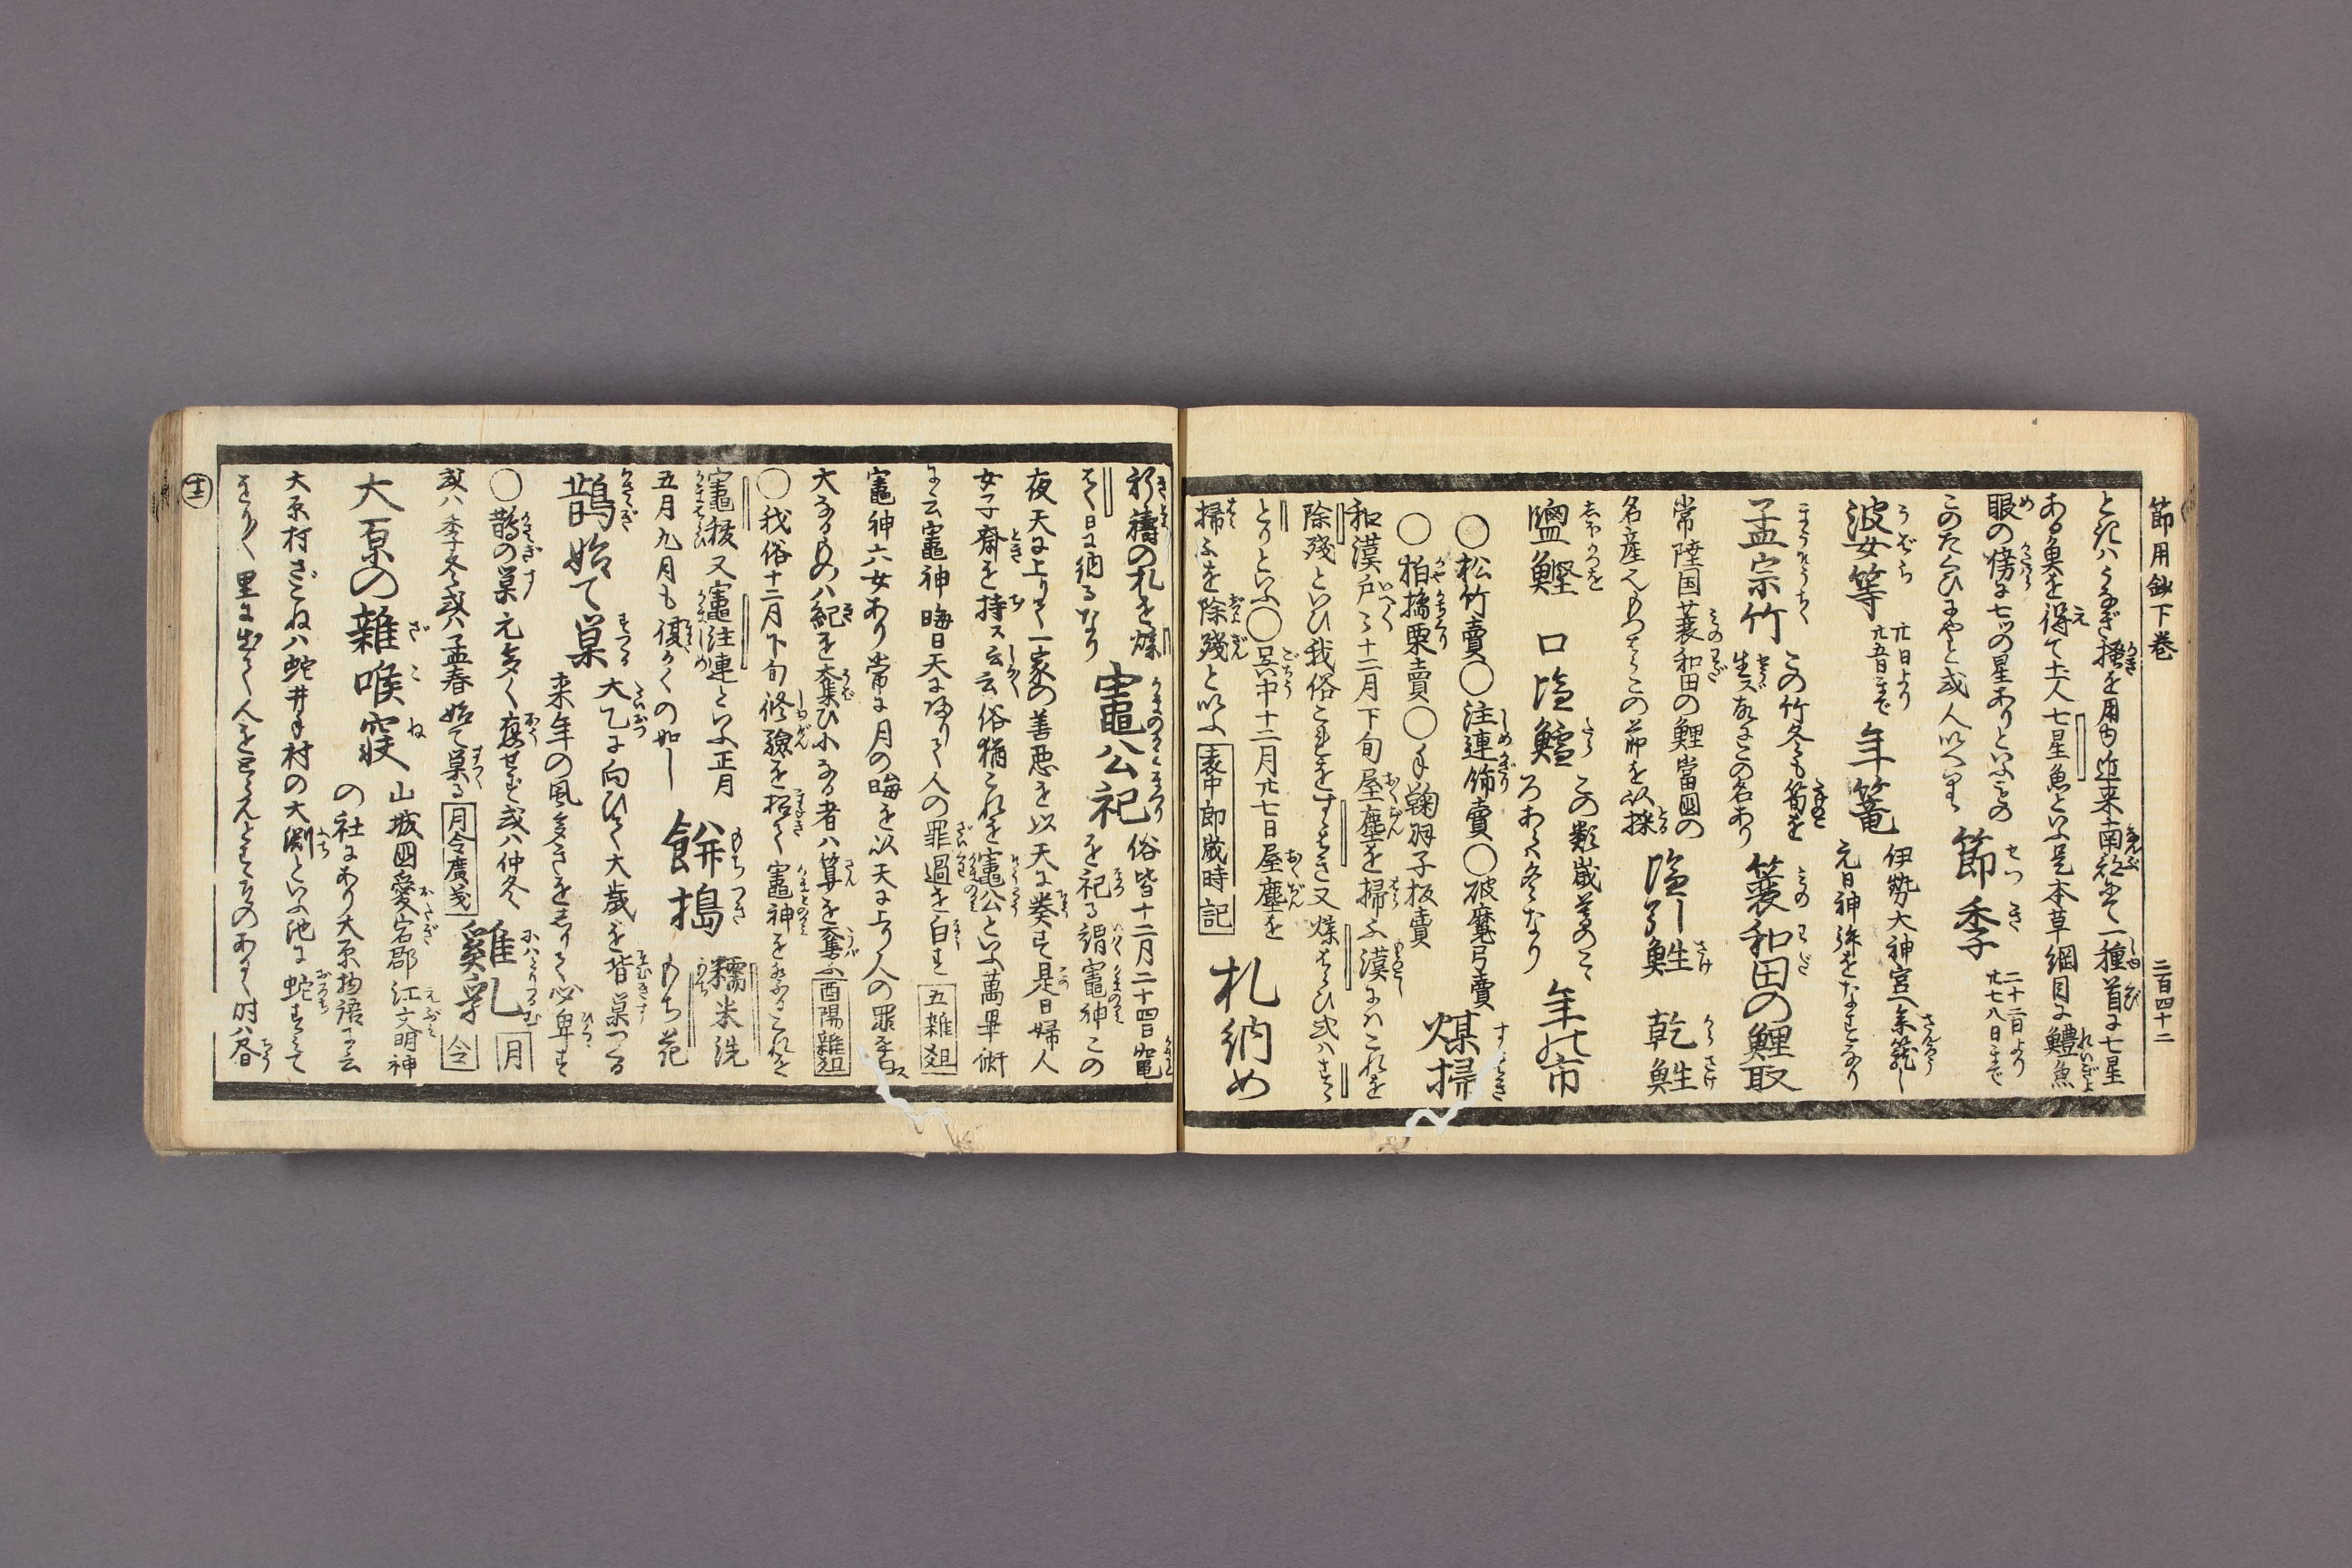 節用鈔下巻
二百四十二
ときハうなぎ掻を用由近来南部にて一種首に七星
ある魚を得て土人七星魚といふ是本草綱目に鱧魚
眼の傍に七ツの星ありといふもの
このたぐひにやと或人いへり
節季 二十二日より
廿七八日まで
波女等 廿日より
廿五日まで
年篭 伊勢大神宮へ参籠し
元日神拝をなすなり
孟宗竹 この竹冬も筍を
生ズ故にこの名あり
簑和田の鯉取
常陸国蓑和田の鯉當国の
名産
この節を以採
塩引鮏 乾鮏
鹽鰹 口塩鱈 この類歳暮の
年の市
○松竹賣○注連飾賣○破魔弓賣
○柏搗栗賣○手鞠羽子板賣
煤掃
和漢戸〻十二月下旬屋塵を掃ふ漢にハこれを
除殘といひ我俗これをすゝはき又煤はらひ或ハすゝ
とりといふ○呉中十二月廿七日屋塵を
掃ふを除殘と以ふ 袁中郎歳時記
札納め
祈禱の札を煤
はく日に納るなり
竈公祀 俗皆十二月二十四日竈
を祀る謂竈神この
夜天に上りて一家の善悪を以天に奏す是日婦人
女子齋を持ス云云俗猶これを竈公といふ萬畢術
に云竈神晦日天に帰りて人の罪過を白す 五雜爼
竈神六女あり常に月の晦を以天に上り人の罪を白ス
大なるものハ紀を奪ひ小なる者ハ算を奪ふ 酉陽雜爼
○我俗十二月下旬修験を招て竈神をまつるこれを
竈祓又竈注連といふ正月
五月九月も復かくの如し
餅搗 糯米洗
もち花
鵲始て巣 大乙に向ひて大歳を背巣つくる
来年の風多きをしりて必卑す
○鵲の巣元多く
せず或ハ仲冬
或ハ季冬或ハ孟春始て巣る 月令廣義
雞乳 月
令
大原の雜喉寝 山城国愛宕郡江文明神
の社にあり大原物語に云
大原村ざこねハ蛇井手村の大渕といふ池に蛇すみて
をり〳〵里に出て人をとらんとすものあり〳〵時ハ昼
十三